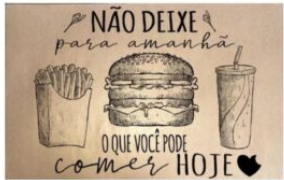 NÃO DEIXE
para amanhã
O QUE VOCÊ PODE
comer HOJE